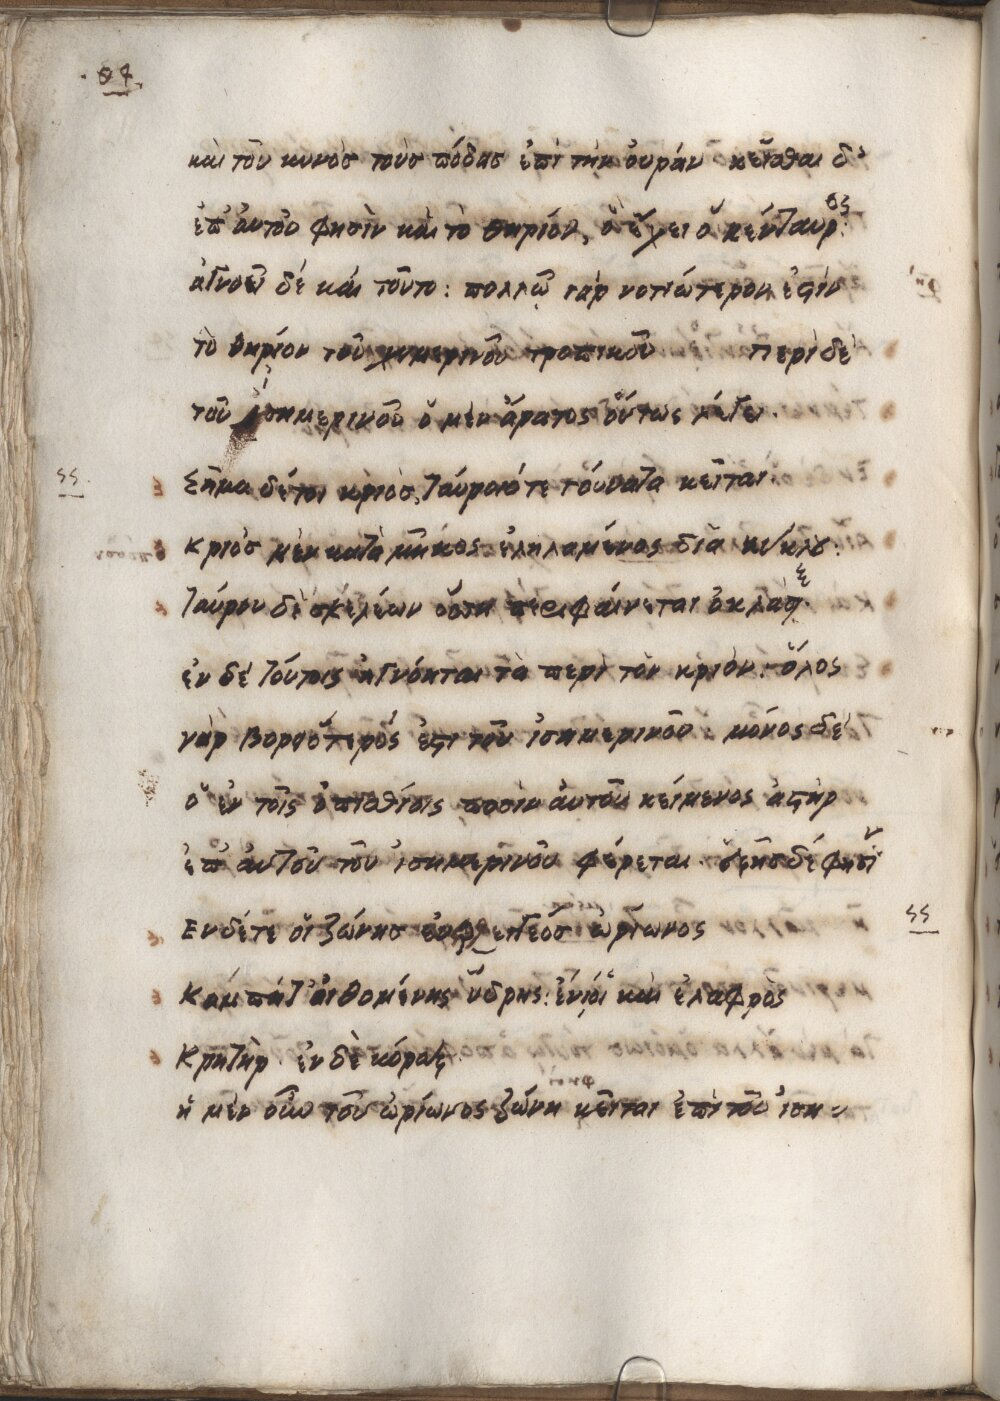 καὶ τοῦ κυνὸσ τοὺσ πόδασ ἐπὶ τὴν ὀυράν κεῖσθαι δὲ
ἐπ' ἀυτοῦ φησὶν καὶ τὸ θηρίον, ὃ ἔχει ὁ κένταυρος:
ἀγνοεῖ δὲ καὶ τοῦτο: πολλῶ γὰρ νοτιώτερον ἐστὶν
τὸ θηρίον τοῦ χειμερινοῦ τροπικοῦ περὶ δὲ
τοῦ ἰσημερινοῦ ὁ μὲν ἄρατος ὅυτως λέγει.
ςς.
Σῆμα δέτοι κριὸσ, ταύροιό τε γόυνατα κεῖται:
Κριὸσ μὲν κατὰ μῆκος ἐληλαμένος διὰ κύκλου:
Ταύρου δὲ σκελέων ὅσση περιφαίνεται ὀκλὰξ.
ἐν δὲ τούτοις ἠγνόηται τὰ περὶ τὸν κριὸν: ὅλος
γὰρ βορειότερός ἐστι τοῦ ἰσημερινοῦ: μόνος δὲ
ὁ ἐν τοῖς ὀπισθίοις ποσὶν ἀυτοῦ κείμενος ἀστὴρ
ἐπ' ἀυτοῦ τοῦ ἰσημερινοῦ φέρεται. ἑξῆσ δέ φησὶν
ςς
Εν δέτε οἱ ζώνησ ὠρίωνος
Καμπὰτ' ἀιθομένης ὕδρης: ἐνίοι καὶ ἐλαφρὸς
Κρητὴρ ἐν δὲ κόραξ.
ἡ μὲν οὖν τοῦ ὠρίωνος ζώνη κεῖται ἐπὶ τοῦ ἰση